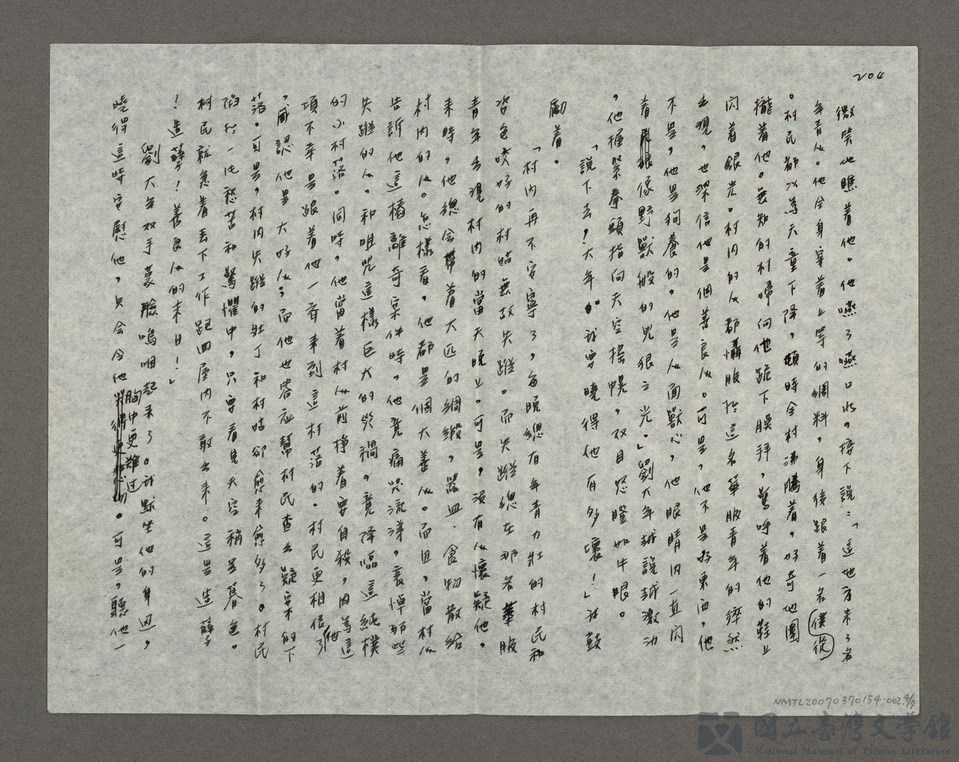 204
微笑地瞧著他。他嚥了嚥口水，接下說：「這地方來了名
年青人。他全身穿着上等的綢料，身後跟着一名僕從
。村民都以為天童下降，頓時全村沸騰着，好奇地圍
攏着他。無知的村婦向他跪下膜拜，驚呼着他的鞋上
閃着銀光。村內的人都懾服於這名華服青年的猝然
出現，也深信他是個善良人。可是，他不是好東西，他
不是，他是狗養的，他是人面獸心，他眼睛內一直閃
着像野獸般的兇狠之光。」劉大年越說越激動
，他握緊拳頭指向天空搖幌，双目怒瞪如牛眼。
「說下去？大年，我要曉得他有多壞！」我鼓
勵着。
「村內再不安寧了，每晚總有年青力壯的村民和
姿色姣好的村姑無故失蹤。而失蹤總在那名華服
青年出現村內的當天晚上。可是，沒有人懷疑他。
來時，他總會帶着大匹的綢緞，器皿、食物散給
村內的人。怎樣看，他都是個大善人。而且，當村人
告訴他這樁離奇案件時，他竟痛哭流涕，哀悼那些
失蹤的人，和咀咒這樣巨大的災禍，竟降臨這純樸
的小村落。同時，他當着村人前掙着要自殺，因為這
項不幸是跟着他一齊來到這村落的。村民更相信了他
，咸認他是大好人；而他也答应幫村民查出疑案的下
落。可是，村內失蹤的壯丁和村姑卻愈來愈多了。村民
陷於一片愁苦和驚懼中，只要看見天空稍呈暮色。
村民就急着丟下工作跑回屋內不敢出來。這是造孽
！造孽！善良人的末日！」
劉大年双手蒙臉嗚咽起來了。我默坐他的身边，
曉得這時安慰他，只會令他胸中更難过。可是，聽他一
NMTL20070370154-002 4/7
國立臺灣文學館
National Museum of Taiwan Literature